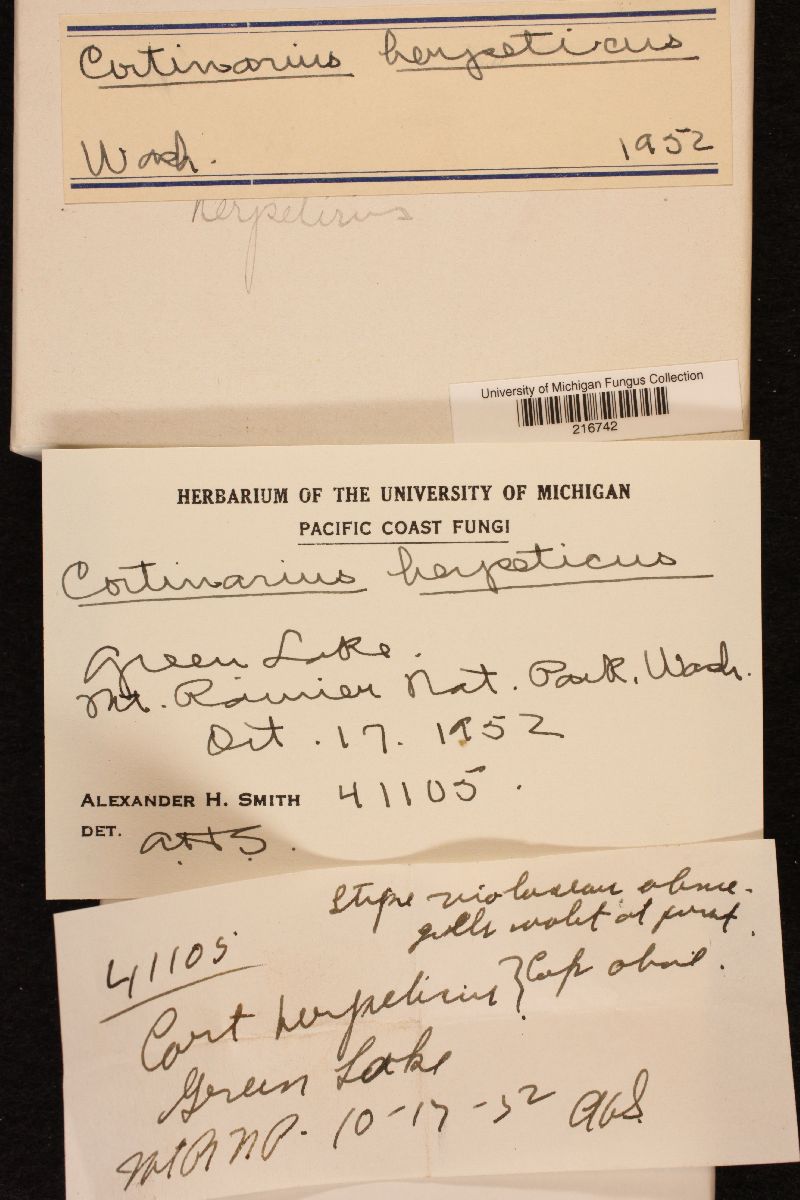 Cortinarius herpeticus
Wash. 1952
herpeticus
University of Michigan Fungus Collection
216742
HERBARIUM OF THE UNIVERSITY OF MICHIGAN
PACIFIC COAST FUNGI
Cortinarius herpeticus
Green Lake.
Mt. Rainier Nat. Park, Wash.
Oct. 17. 1952
ALEXANDER H. SMITH 41105.
DET. AHS.
Stipe violaceau above.
gills violet at first.
41105
Cort herpeticus } Cap olive.
Green Lake
Mt R N P. 10-17-52 AHS